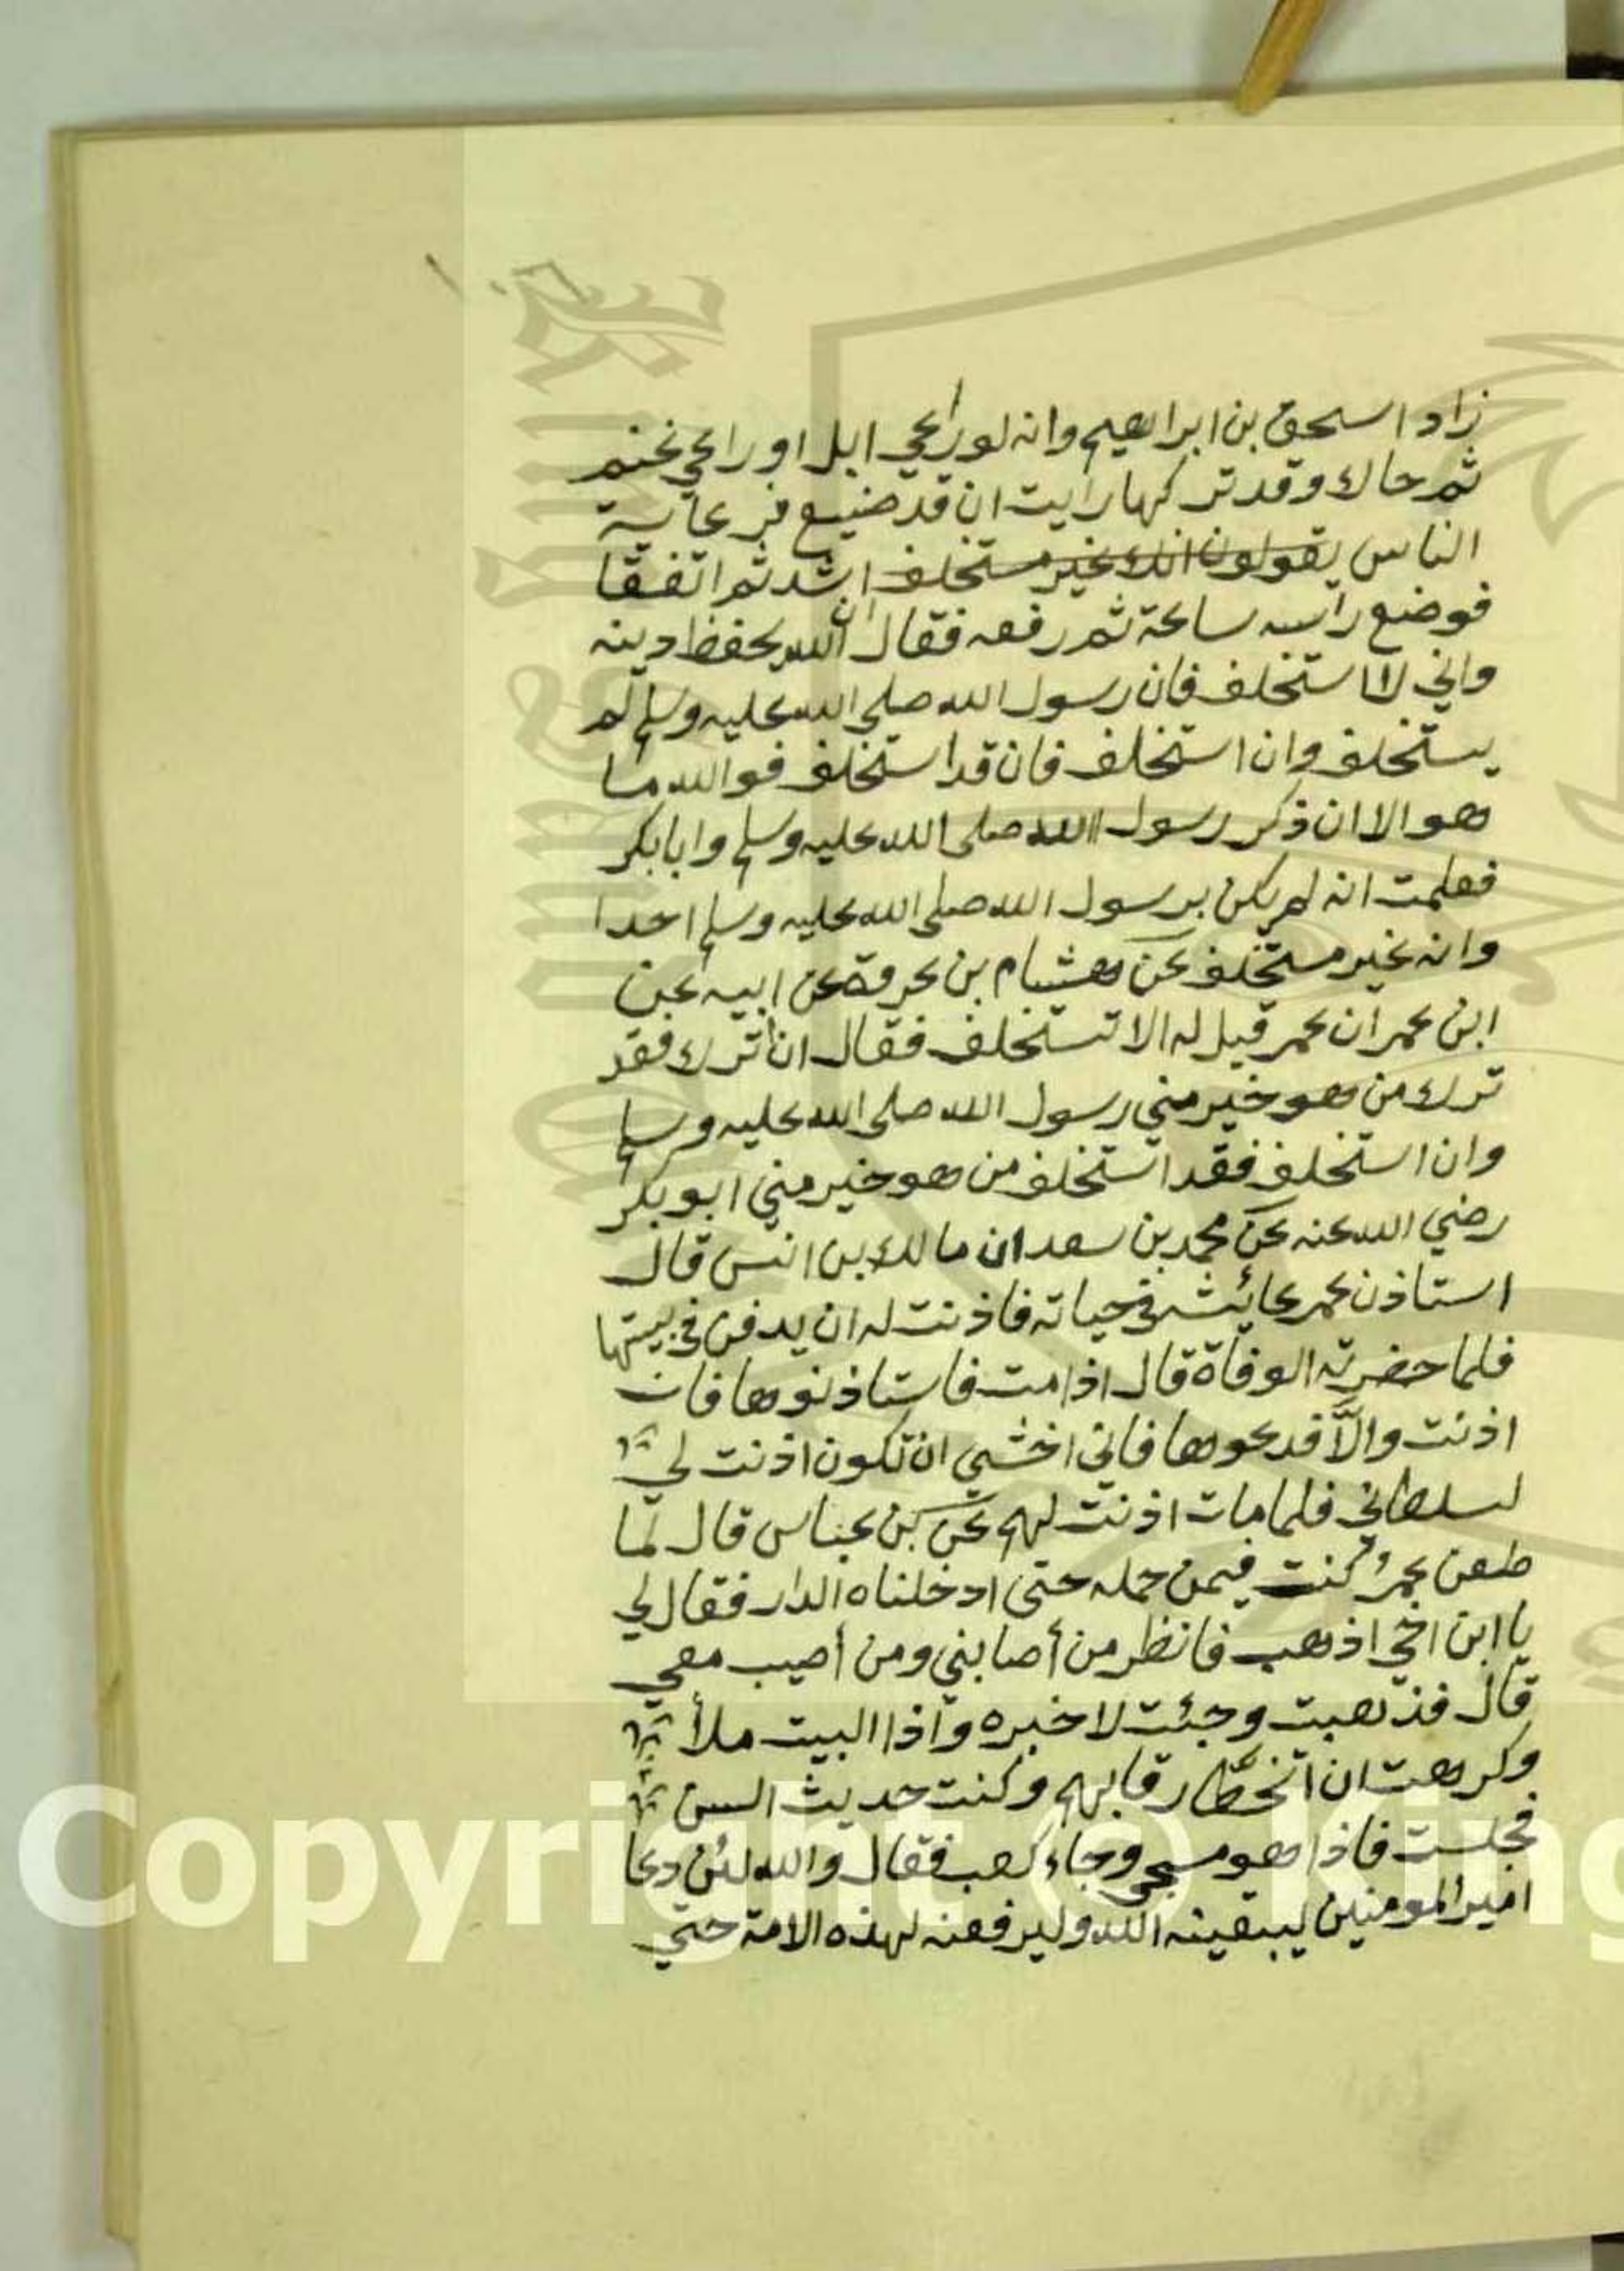 زاد اسحق بن ابراهيم وانه لو راعي ابل او راعي غنم
ثم جاك وقد تركها رايت ان قد ضيع فرعاية
الناس يقولون انك غير مستخلف اشد ثم اتفقا
فوضع راسه ساعة ثم رفعه فقال ان الله يحفظ دينه
واني لا استخلف فان رسول الله صلى الله عليه وسلم لم
يستخلف وان استخلف فان قد استخلف فوالله ما
هو الا ان ذكر رسول الله صلى الله عليه وسلم وابا بكر
فعلمت انه لم يكن برسول الله صلى الله عليه وسلم احدا
وانه غير مستخلف عن هشام بن عروة عن ابيه عن
ابن عمر ان عمر قيل له الا تستخلف فقال ان اترك فقد
ترك من هو خير مني رسول الله صلى الله عليه وسلم
وان استخلف فقد استخلف من هو خير مني ابو بكر
رضي الله عنه عن محمد بن سعد ان مالك بن انس قال
استاذن عمر عائشة في حياته فاذنت له ان يدفن في بيتها
فلما حضرته الوفاة قال اذا مت فاستاذنوها فان
اذنت والّا فدعوها فاني اخشي ان تكون اذنت لي
لسلطاني فلما مات اذنت لهم عن بن عباس قال لما
طعن عمر كنت فيمن حمله حتى ادخلناه الدار فقال لي
يا ابن اخي اذهب فانظر من أصابني ومن أصيب معي
قال فذهبت وجئت لاخبره واذا البيت ملأ
وكرهت ان اتخطا رقابهم وكنت حديث السن
فجلست فاذا هو مسجى وجاء كعب فقال والله لئن دعا
امير المومنين ليبقينه الله وليرفعنه لهذه الامة حتي
Copyright © King